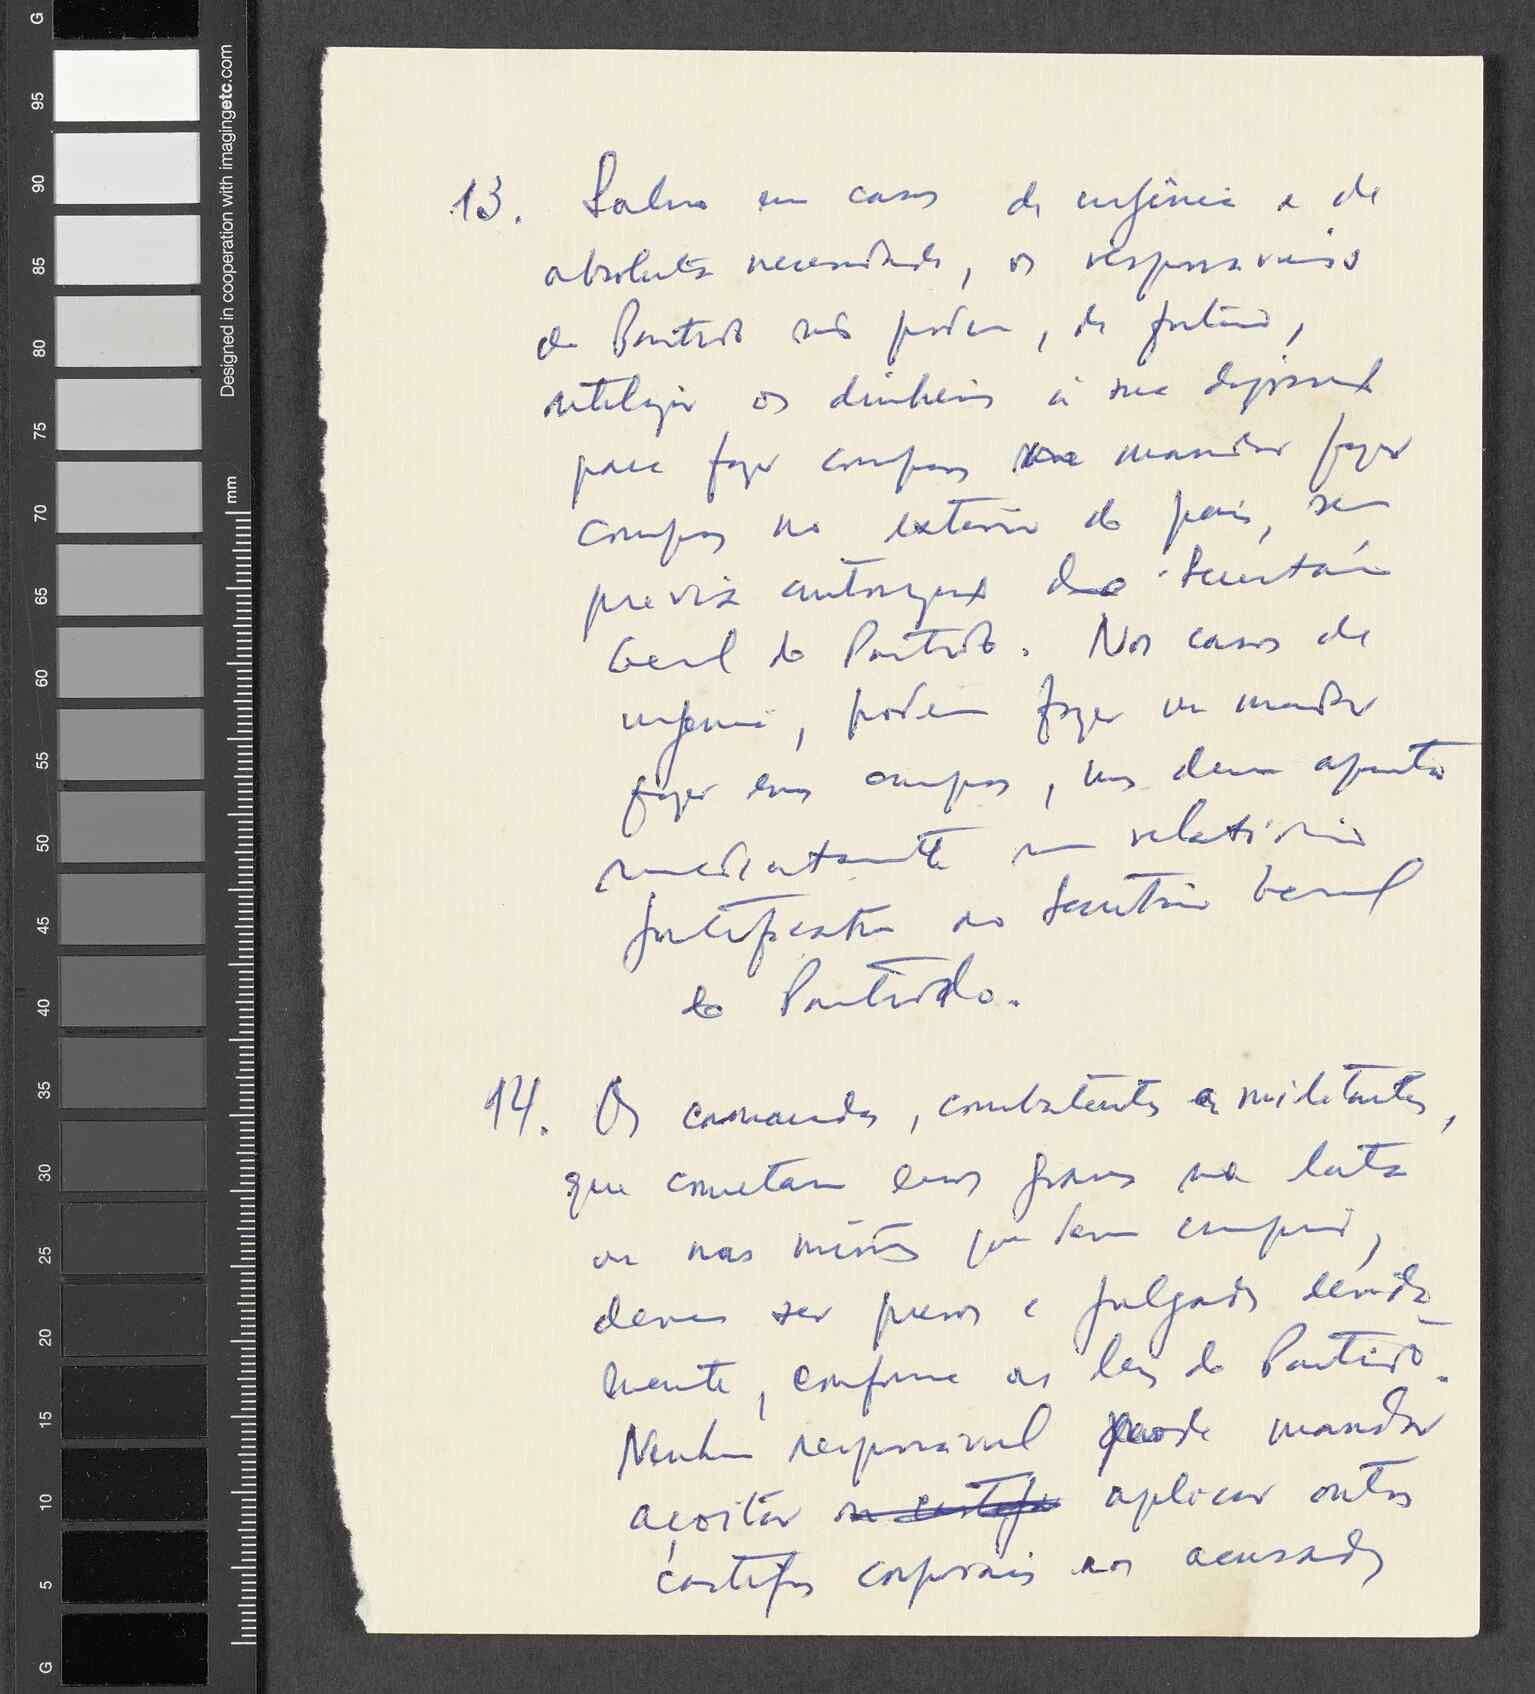 G
95
90
85
80
75
70
65
60
55
50
45
40
35
30
25
20
15
10
5
G
Designed in cooperation with imagingetc.com
mm
13. Salvo em casos de urgência e de
absoluta necessidade, os responsáveis
do Partido não podem, de futuro,
utilizar os dinheiros à sua disposição
para fazer compras ou mandar fazer
compras no exterior do país, sem
prévia autorização do Secretário
Geral do Partido. Nos casos de
urgência, podem fazer ou mandar
fazer essas compras, mas devem apresentar
imediatamente um relatório
justificativo ao Secretário Geral
do Partido.
14. Os camaradas, combatentes e militantes,
que cometam erros graves na luta
ou nas missões que devem cumprir,
devem ser presos e julgados devida-
mente, conforme as leis do Partido.
Nenhum responsável pode mandar
açoitar ou castigar aplicar outros
castigos corporais aos acusados